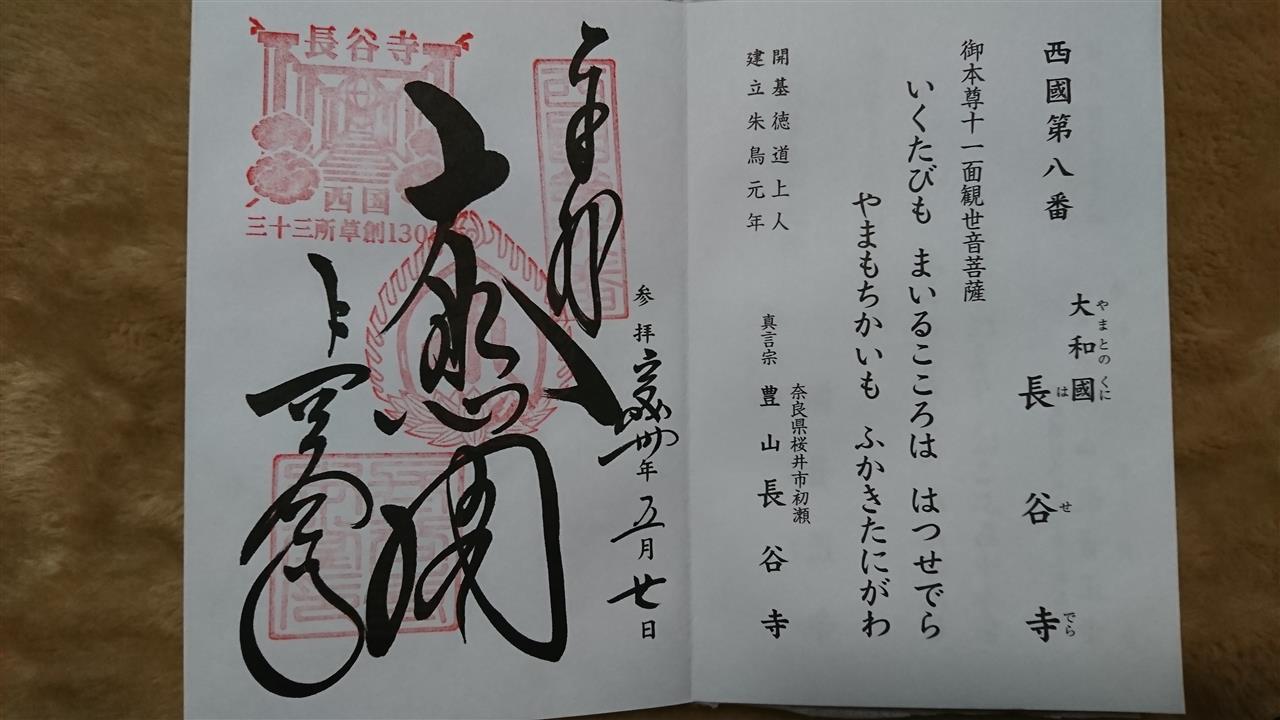 西國第八番
大和國
やまとの くに
長谷寺
は せ でら
御本尊十一面観世音菩薩
いくたびも まいるこころは はつせでら
やまもちかいも ふかきたにがわ
開基徳道上人
建立朱鳥元年
奈良県桜井市初瀬
真言宗 豊山長谷寺
奉拝
参拝平成卅年五月廿日
大悲閣
長谷寺
西国
三十三所草創130